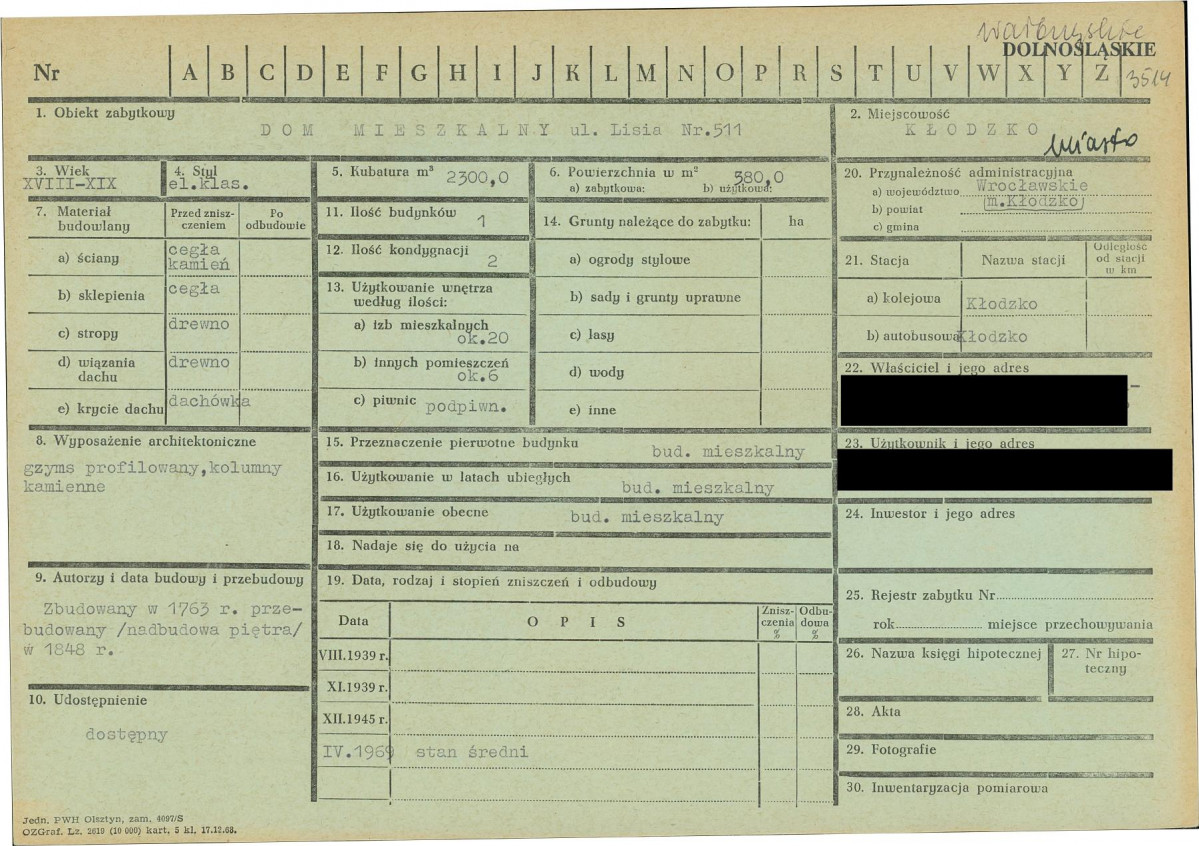 wałbrzyskie
DOLNOŚLĄSKIE
Nr A B C D E F G H I J K L M N O P R S T U V W X Y Z
3514
1. Obiekt zabytkowy
DOM MIESZKALNY ul. Lisia Nr.511
2. Miejscowość
KŁODZKO
miasto
3. Wiek
XVIII-XIX
4. Styl
el.klas.
5. Kubatura m³ 2300,0
6. Powierzchnia w m² 380,0
a) zabytkowa: b) użytkowa:
20. Przynależność administracyjna
a) województwo Wrocławskie
b) powiat (m.Kłodzko)
c) gmina
7. Materiał budowlany
Przed zniszczeniem
Po odbudowie
a) ściany cegła kamień
b) sklepienia cegła
c) stropy drewno
d) wiązania dachu drewno
e) krycie dachu dachówka
11. Ilość budynków 1
12. Ilość kondygnacji 2
13. Użytkowanie wnętrza
według ilości:
a) izb mieszkalnych
ok.20
b) innych pomieszczeń
ok.6
c) piwnic podpiwn.
14. Grunty należące do zabytku: ha
a) ogrody stylowe
b) sady i grunty uprawne
c) lasy
d) wody
e) inne
21. Stacja
Nazwa stacji
Odległość
od stacji
w km
a) kolejowa Kłodzko
b) autobusowa Kłodzko
22. Właściciel i jego adres
23. Użytkownik i jego adres
8. Wyposażenie architektoniczne
gzyms profilowany,kolumny
kamienne
15. Przeznaczenie pierwotne budynku
bud. mieszkalny
16. Użytkowanie w latach ubiegłych
bud. mieszkalny
17. Użytkowanie obecne bud. mieszkalny
18. Nadaje się do użycia na
24. Inwestor i jego adres
9. Autorzy i data budowy i przebudowy
Zbudowany w 1763 r. prze-
budowany /nadbudowa piętra/
w 1848 r.
10. Udostępnienie
dostępny
19. Data, rodzaj i stopień zniszczeń i odbudowy
Data OPIS
Znisz-
czenia
%
Odbu-
dowa
%
VIII.1939 r.
XI.1939 r.
XII.1945 r.
IV.1969 stan średni
25. Rejestr zabytku Nr
rok miejsce przechowywania
26. Nazwa księgi hipotecznej
27. Nr hipo-
teczny
28. Akta
29. Fotografie
30. Inwentaryzacja pomiarowa
Jedn. PWH Olsztyn, zam. 4097/S
OZGraf. Lz. 2619 (10 000) kart, 5 kl, 17.12.68.